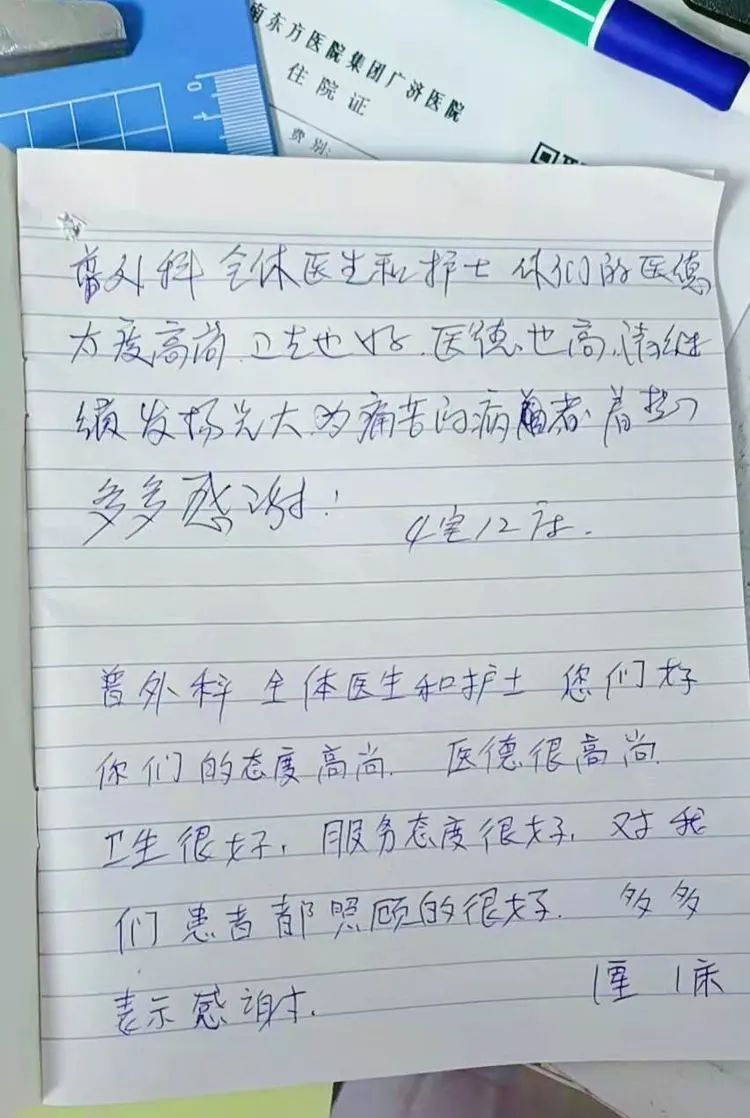 南东方医院集团广济医院
住院证
费别:
普外科 全体医生和护士 你们的医德
方度高尚.卫生也好.医德也高.请继
续发扬光大.为痛苦的病患者.着想
多多感谢!
4室12床.
普外科 全体医生和护士 您们好
你们的态度高尚. 医德很高尚.
卫生很好, 服务态度很好, 对我
们患者都照顾的很好. 多多
表示感谢.
1室1床